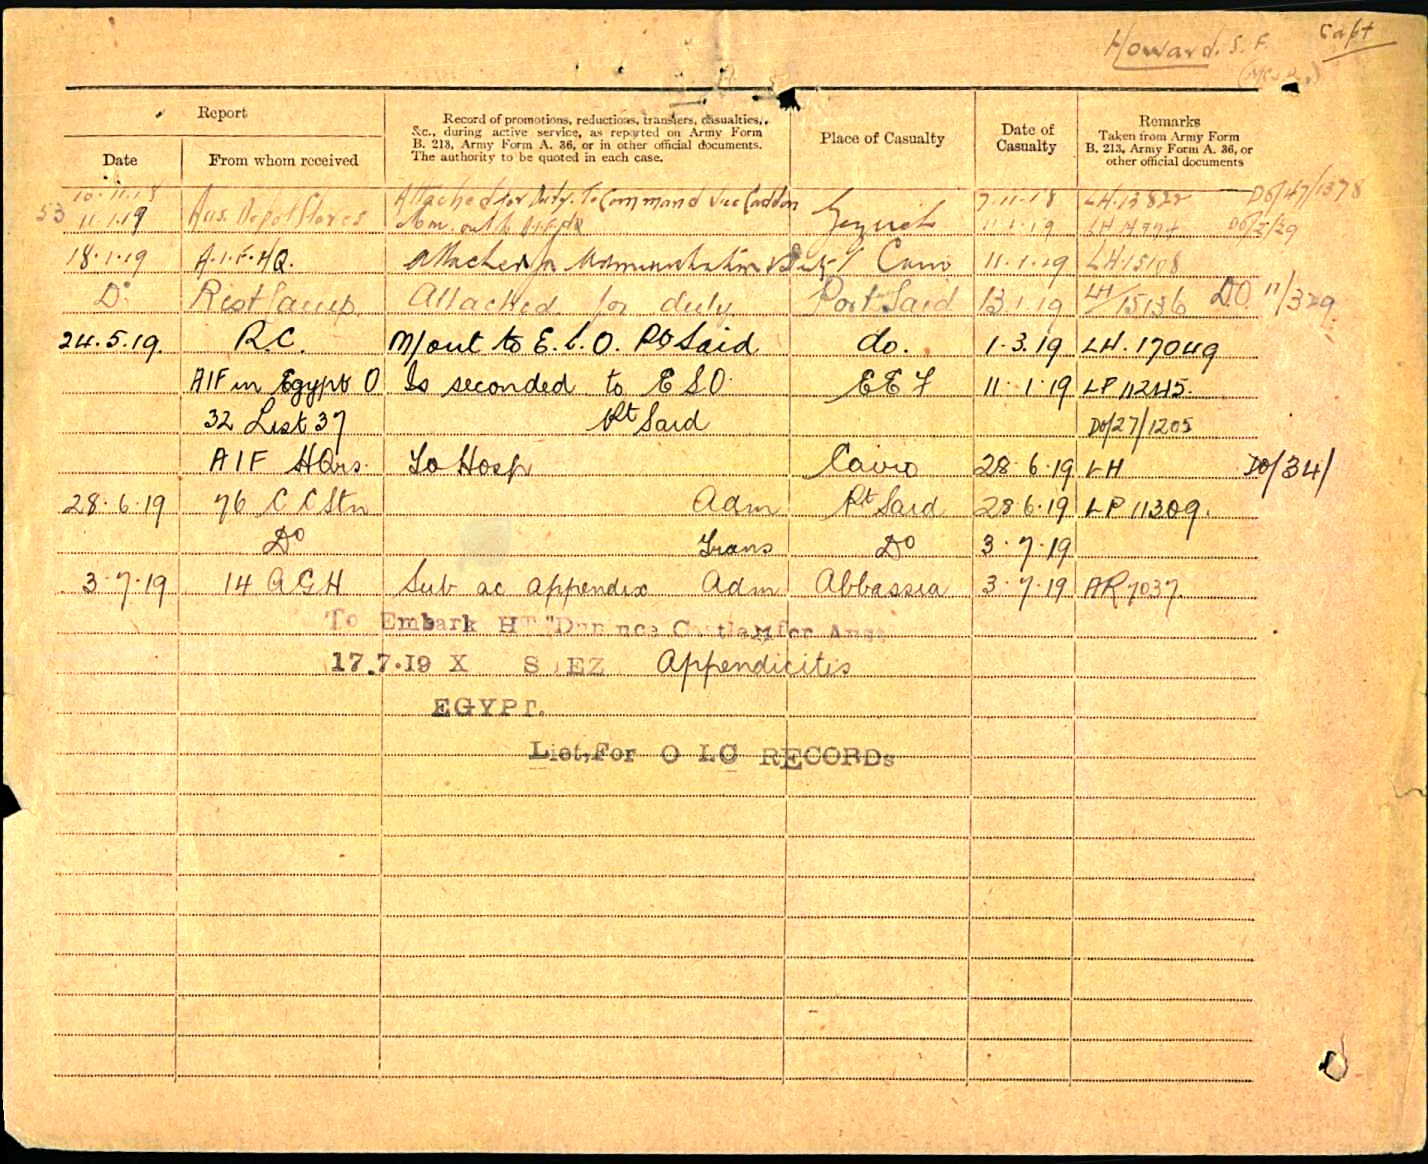 Howard. S. F. Capt
Report
Date
From whom received
Record of promotions, reductions, transfers, casualties, &c., during active service, as reported on Army Form B. 213, Army Form A. 36, or in other official documents. The authority to be quoted in each case.
Place of Casualty
Date of Casualty
Remarks
Taken from Army Form B. 213, Army Form A. 36, or other official documents
10.11.18 Attached for Duty. To Command vice 7.11.18 LH.13822 DO/47/1378
53 11.1.19 Aus. Depot Stores 11.1.19 LH
18.1.19 A.I.F. HQ. Attached for Administration & Duty Cairo 11.1.19 LH.15108
Do Rest Camp Attached for duty Port Said 13.1.19 LH/15136 DO 11/329
24.5.19. R.C. M/out to E.S.O. Pt Said do. 1.3.19 LH.17049
AIF in Egypt O Is seconded to ESO EEF 11.1.19 LP 11245.
32 List 37 Pt Said DO/27/1205
AIF HQrs. To Hosp Cairo 28.6.19 LH DO/34/
28.6.19 76 C C Stn Adm Pt Said 28.6.19 LP 11309.
Do Trans Do 3.7.19
3.7.19 14 AGH Sub ac appendix Adm Abbassia 3.7.19 AR 7037.
To Embark HT for Aus
17.7.19 X SUEZ Appendicitis
EGYPT.
List, For O I.C RECORDs